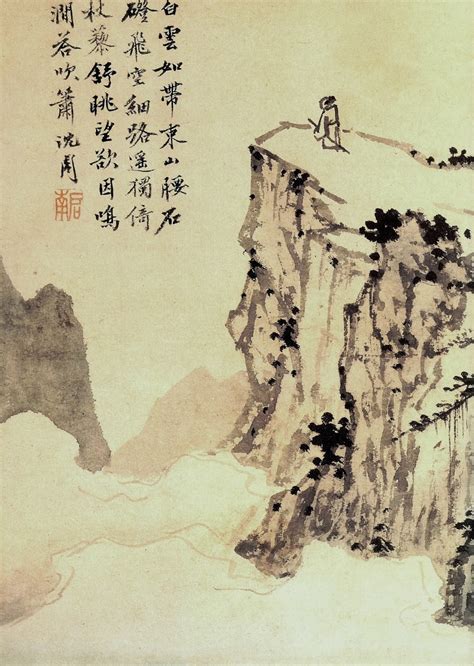 白雲如帶束山腰石
磴飛空細路遙獨倚
杖藜舒眺望欲因鳴
澗荅吹簫沈周
啓南